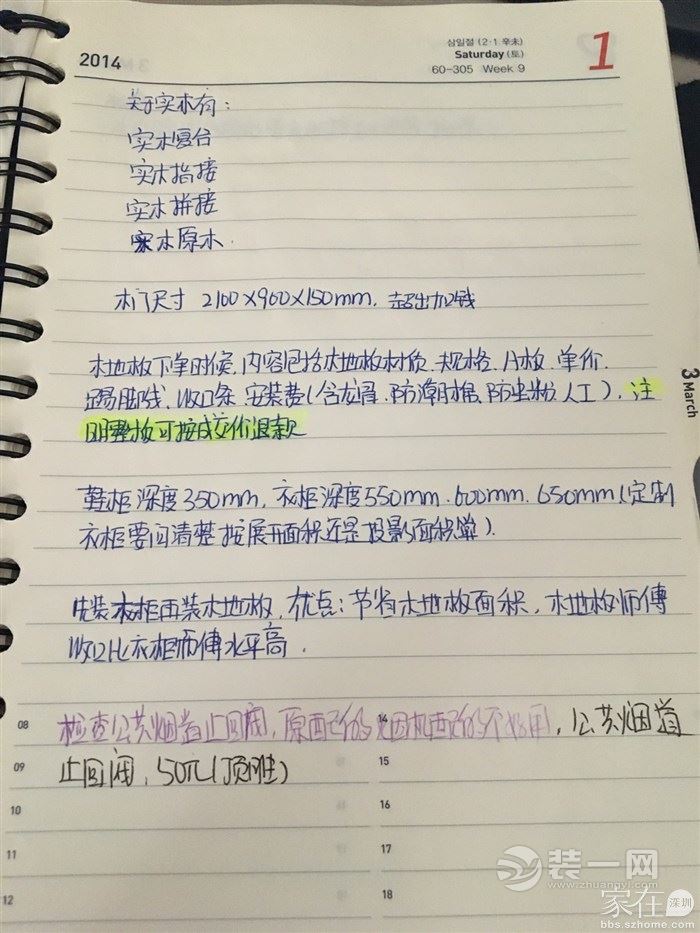 2014
삼일절 (2·1.辛未)
Saturday (토)
60-305 Week 9
1
关于实木有：
实木复合
实木指接
实木拼接
实木原木.
木门尺寸 2100×900×150mm. 超出加钱
木地板下单时候，内容包括木地板材质.规格.A板.单价.
踢脚线.收口条.安装费(含龙骨.防潮棉.防虫粉.人工).注
明整板可按成交价退款
鞋柜深度350mm，衣柜深度550mm.600mm.650mm(定制
衣柜要问清楚按展开面积还是投影面积算).
先装衣柜再装木地板，优点：节省木地板面积，木地板师傅
收口比衣柜师傅水平高.
3 March
08 检查公共烟道止回阀，原配的 烟机配的不好用，公共烟道
14
09 止回阀，50元(顶胜)
15
10
16
11
17
12
18
装一网
www.zhuangyi.com
家在深圳
bbs.szhome.com